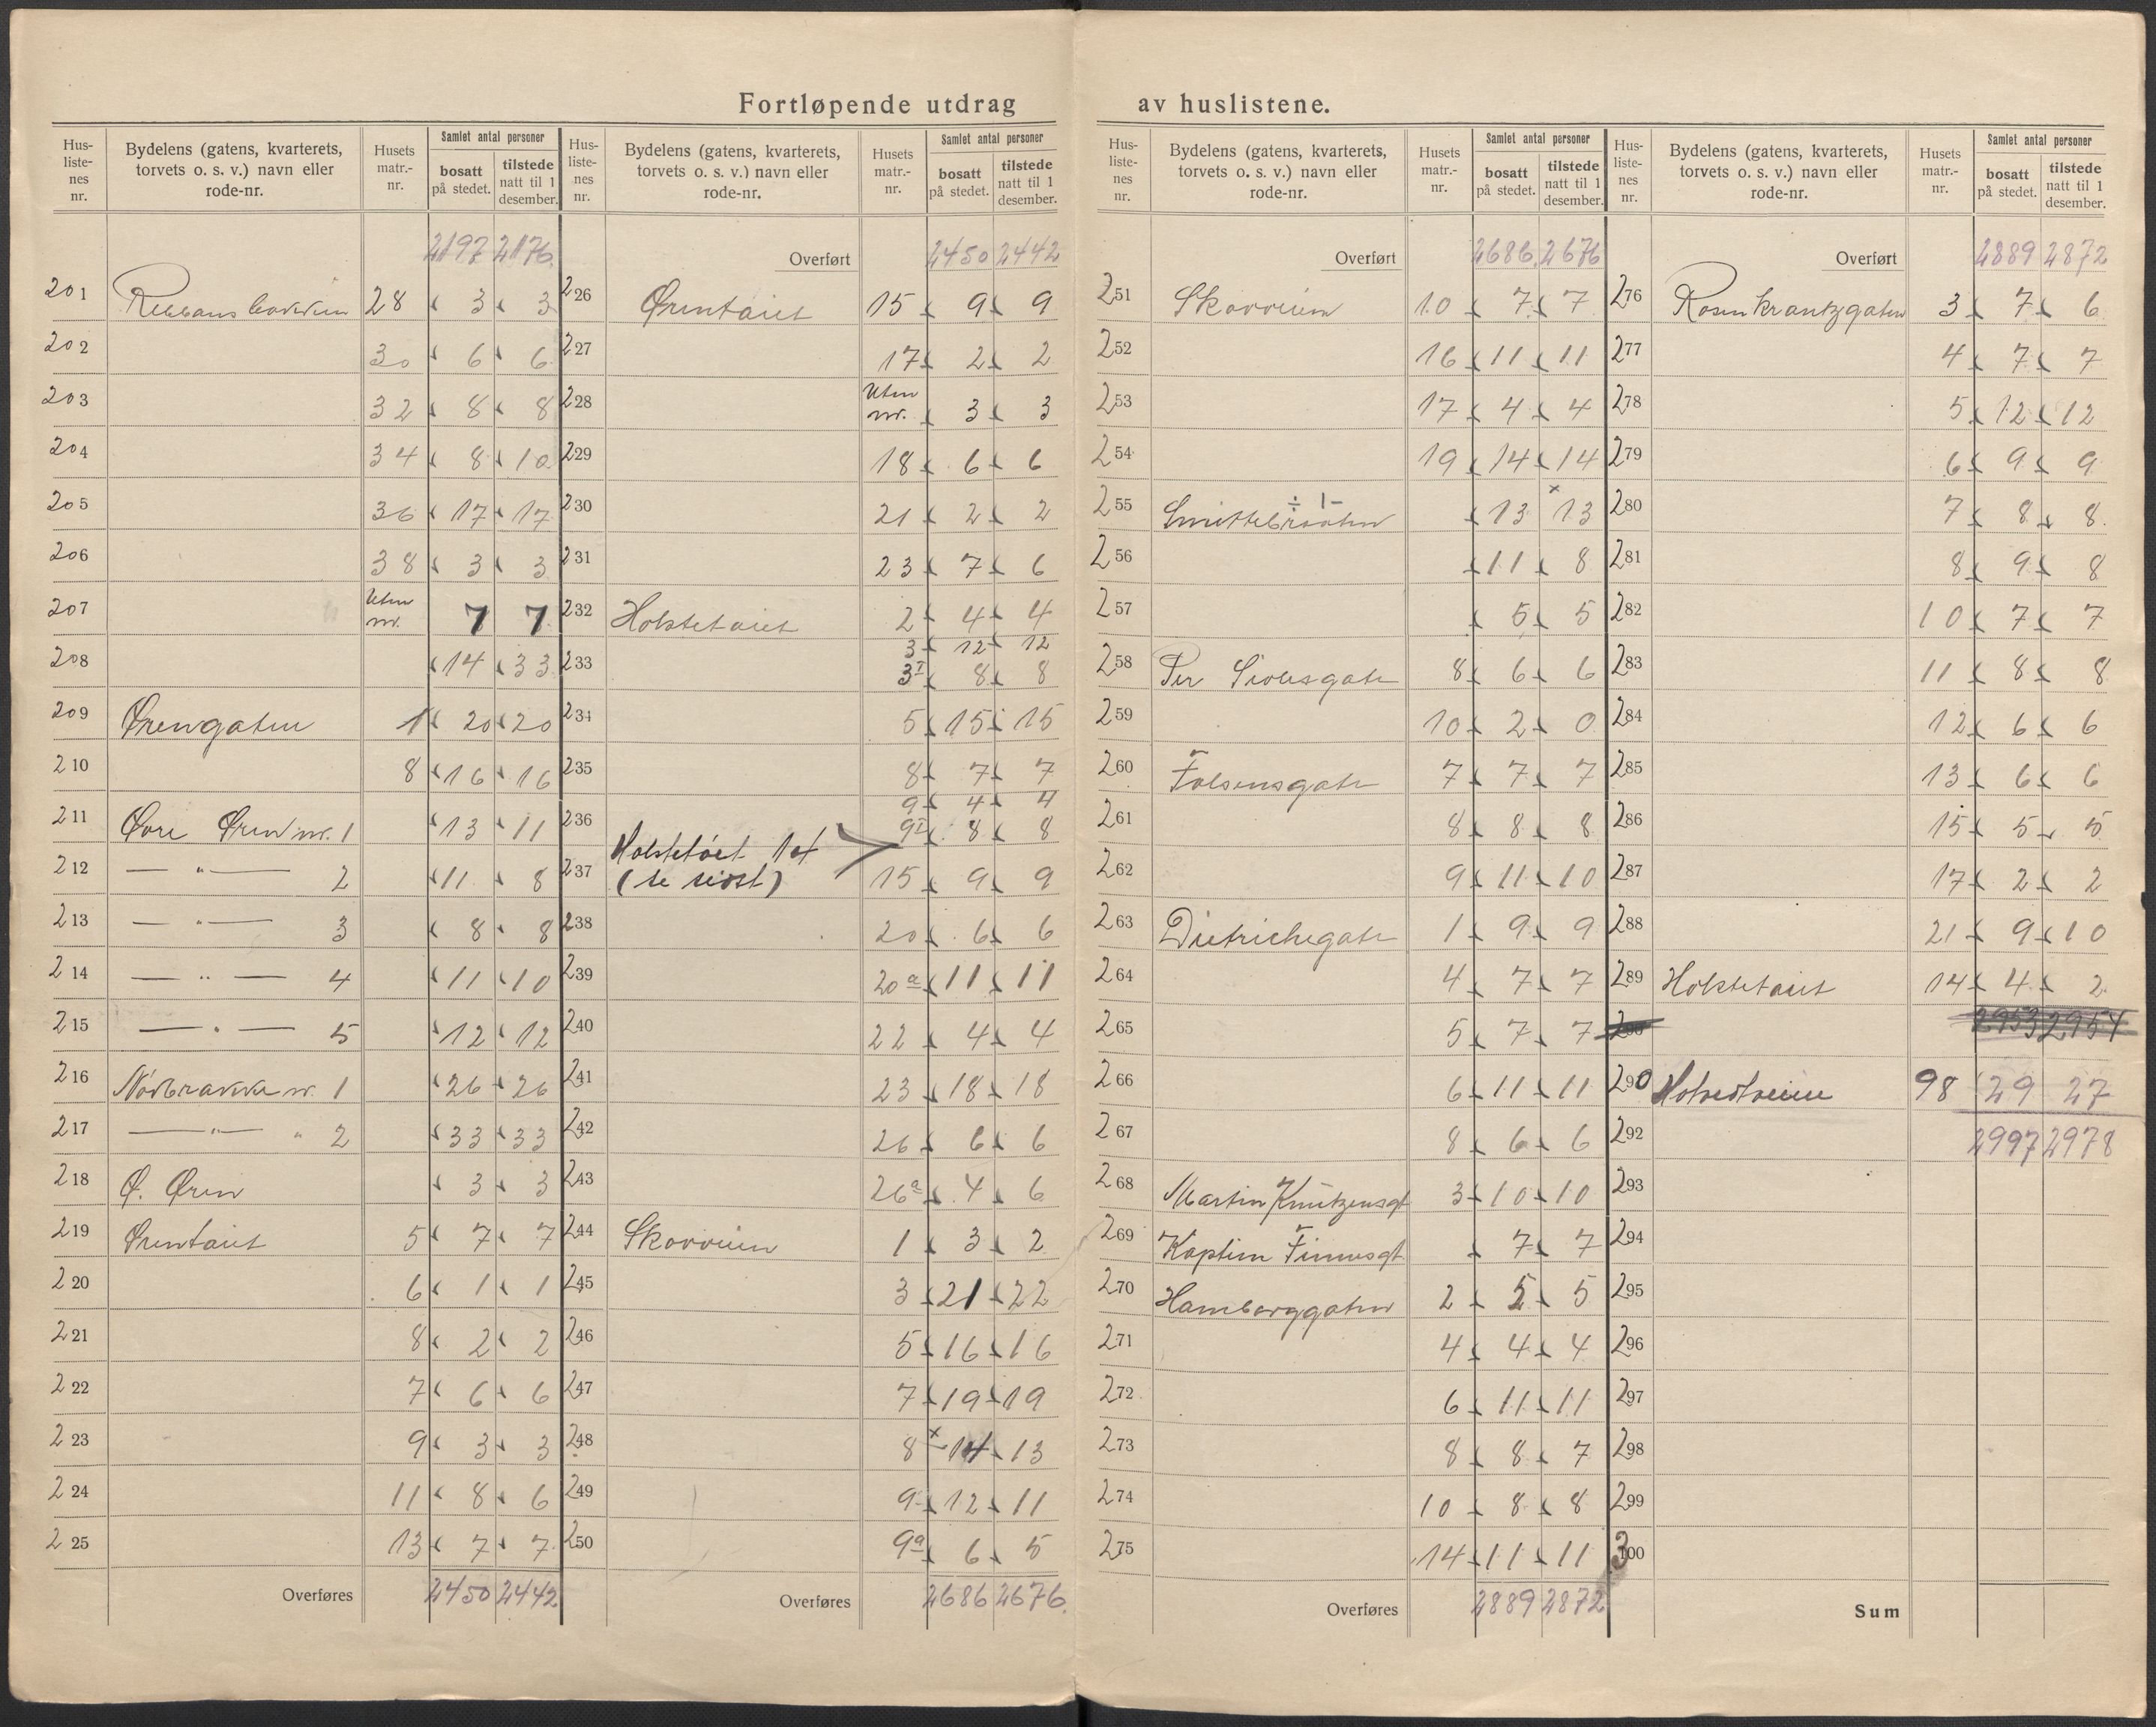 Fortløpende utdrag av huslistene.
Hus-listenes nr. Bydelens (gatens, kvarterets, torvets o. s. v.) navn eller rode-nr. Husets matr.-nr. Samlet antal personer bosatt på stedet. tilstede natt til 1 desember.
2197 2176
201 28 3 3
202 30 6 6
203 32 8 8
204 34 8 10
205 36 17 17
206 38 3 3
207 Uten nr. 7 7
208 14 33
209 Ørengaten 1 20 20
210 8 16 16
211 Øvre Øren nr. 1 13 11
212 — " — 2 11 8
213 — " — 3 8 8
214 — " — 4 11 10
215 — " — 5 12 12
216 Nødbrakke nr. 1 26 26
217 — " — " 2 33 33
218 Ø. Øren 3 3
219 Ørentoiet 5 7 7
220 6 1 1
221 8 2 2
222 7 6 6
223 9 3 3
224 11 8 6
225 13 7 7
Overføres 2450 2442
Hus-listenes nr. Bydelens (gatens, kvarterets, torvets o. s. v.) navn eller rode-nr. Husets matr.-nr. Samlet antal personer bosatt på stedet. tilstede natt til 1 desember.
Overført 2450 2442
226 Ørentoiet 15 9 9
227 17 2 2
228 Uten nr. 3 3
229 18 6 6
230 21 2 2
231 23 7 6
232 Holstetoiet 2 4 4
3 12 12
233 3I 8 8
234 5 15 15
235 8 7 7
9 4 4
236 9I 8 8
Holstetoiet 14
237 (se sidst) 15 9 9
238 20 6 6
239 20a 11 11
240 22 4 4
241 23 18 18
242 26 6 6
243 26a 4 6
244 Skovveien 1 3 2
245 3 21 22
246 5 16 16
247 7 19 19
248 8 x 14 13
249 9 12 11
250 9a 6 5
Overføres 2686 2676
Hus-listenes nr. Bydelens (gatens, kvarterets, torvets o. s. v.) navn eller rode-nr. Husets matr.-nr. Samlet antal personer bosatt på stedet. tilstede natt til 1 desember.
Overført 2686 2676
251 Skovveien 10 7 7
252 16 11 11
253 17 4 4
254 19 14 14
255 ÷ 1- 13 x 13
256 11 8
257 5 5
258 Per Sivlesgate 8 6 6
259 10 2 0
260 Falsensgate 7 7 7
261 8 8 8
262 9 11 10
263 Dietrichsgate 1 9 9
264 4 7 7
265 5 7 7
266 6 11 11
267 8 6 6
268 Martin Knutzensgt 3 10 10
269 Kaptein Finnesgt. 7 7
270 Hamborggaten 2 5 5
271 4 4 4
272 6 11 11
273 8 8 7
274 10 8 8
275 14 11 11
Overføres 2889 2872
Hus-listenes nr. Bydelens (gatens, kvarterets, torvets o. s. v.) navn eller rode-nr. Husets matr.-nr. Samlet antal personer bosatt på stedet. tilstede natt til 1 desember.
Overført 2889 2872
276 Rosenkrantzgaten 3 7 6
277 4 7 7
278 5 12 12
279 6 9 9
280 7 8 8
281 8 9 8
282 10 7 7
283 11 8 8
284 12 6 6
285 13 6 6
286 15 5 5
287 17 2 2
288 21 9 10
289 Holstetoiet 14 4 2
290 98 29 27
292 2997 2978
293
294
295
296
297
298
299
300
Sum